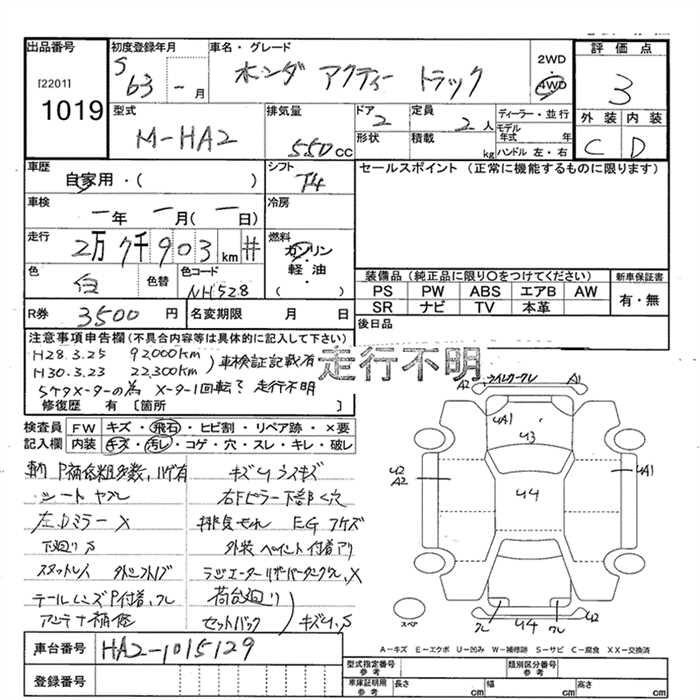 出品番号
[2201]
1019
初度登録年月
S63 - 月
車名・グレード
ホンダ アクティー トラック
2WD
4WD
評価点
3
外装 内装
C D
型式
M-HA2
排気量
550cc
ドア
2
定員
2人
ディーラー・並行
形状
積載
kg
モデル年式 年
ハンドル 左・右
車歴
自家用・( )
シフト
F4
セールスポイント (正常に機能するものに限ります)
車検
一年 一月(一日)
冷房
走行
2万7千903km #
燃料
ガソリン
軽油・
( )
色
白
色替
色コード
NH528
装備品 (純正品に限り○をつけてください)
PS PW ABS エアB AW
SR ナビ TV 本革
新車保証書
有・無
R券
3500円
名変期限 月 日
後日品
注意事項申告欄 (不具合内容等は具体的に記入して下さい)
H28.3.25 92,000km
H30.3.23 22,300km
車検証記載有
走行不明
5ケタメーターの為 メーター1回転? 走行不明
修復歴 有 [箇所 ]
検査員 FW キズ・飛石・ヒビ割・リペア跡・×要
記入欄 内装 キズ・汚レ・コゲ・穴・スレ・キレ・破レ
キズUうスキズ
シート ヤブレ
右Fピラー下部く穴
左Dミラー X
排気モレ EGフケズ
下廻りS
外装ペイント付着アリ
スタットレス
テールレンズP付着,ワレ
荷台廻り
アンテナ補修
セットバック
キズU,S
A2
A1
UA1
U3
U4
U2
A2
UA1
ワレ
ワレ
U4
U2
スペ
A-キズ E-エクボ U-凹み W-補修跡 S-サビ C-腐食 XX-交換済
車台番号
HA2-1015129
登録番号
型式指定番号
参考
類別区分番号
参考
車庫証明用
参考
長さ cm
幅 cm
高さ cm